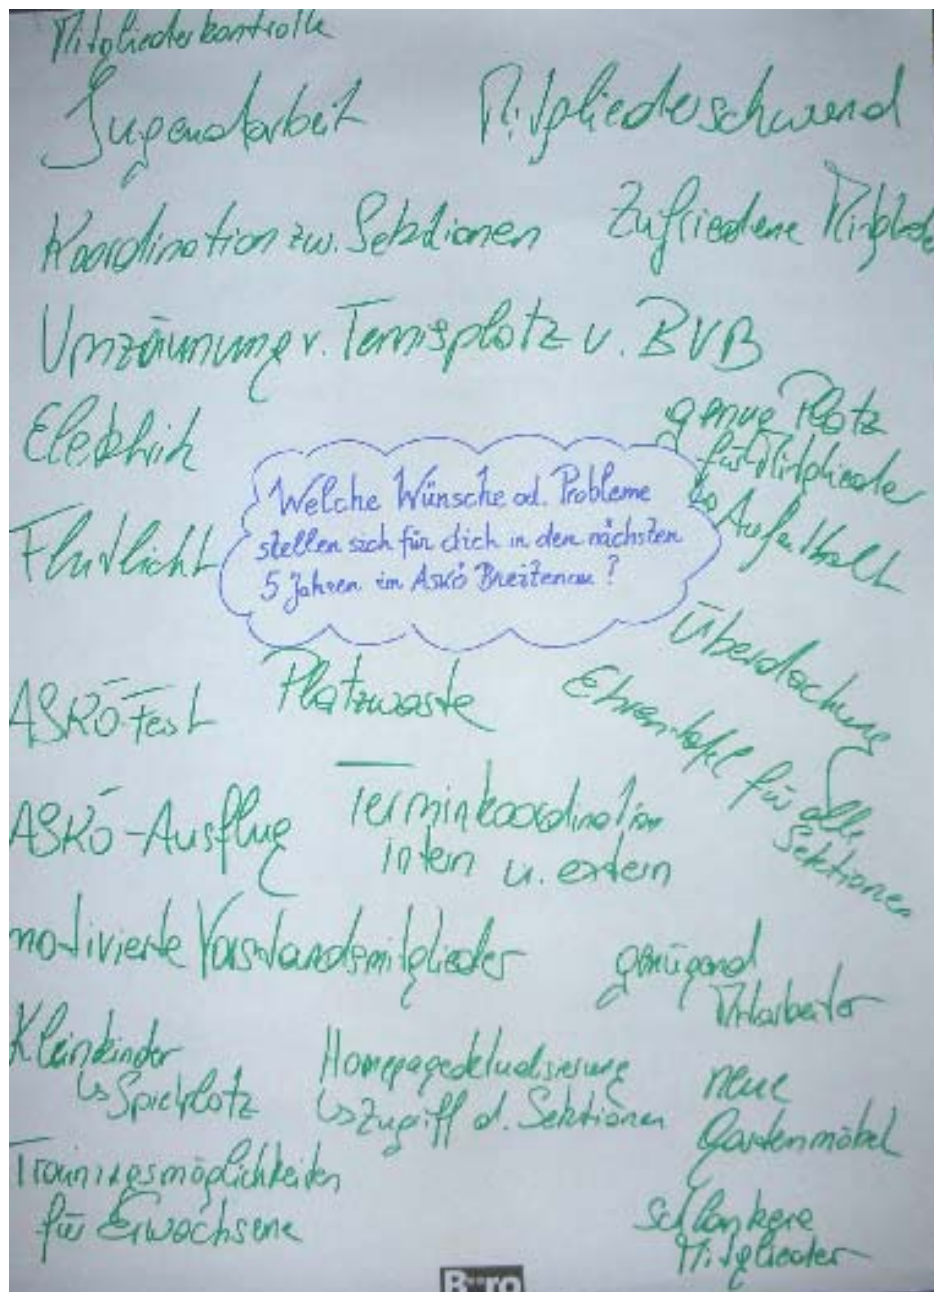 Mitgliederkontrolle
Jugendarbeit
Mitgliederschwund
Koordination zw. Sektionen
Zufriedene Mitglied
Umzäunung v. Tennisplatz u. BVB
Elektrik
genug Platz
für Mitglieder
↳ Aufenthalt
Flutlicht
Welche Wünsche od. Probleme
stellen sich für dich in den nächsten
5 Jahren im Askö Breitenau?
Überdachung
ASKÖ-Fest
Platzwarte
Ehrentafel für alle
Sektionen
ASKÖ-Ausflug
Terminkoordination
intern u. extern
motivierte Vorstandsmitglieder
genügend
Mitarbeiter
Kleinkinder
↳ Spielplatz
Homepageaktualisierung
↳ Zugriff d. Sektionen
neue
Gartenmöbel
Trainingsmöglichkeiten
für Erwachsene
schlankere
Mitglieder